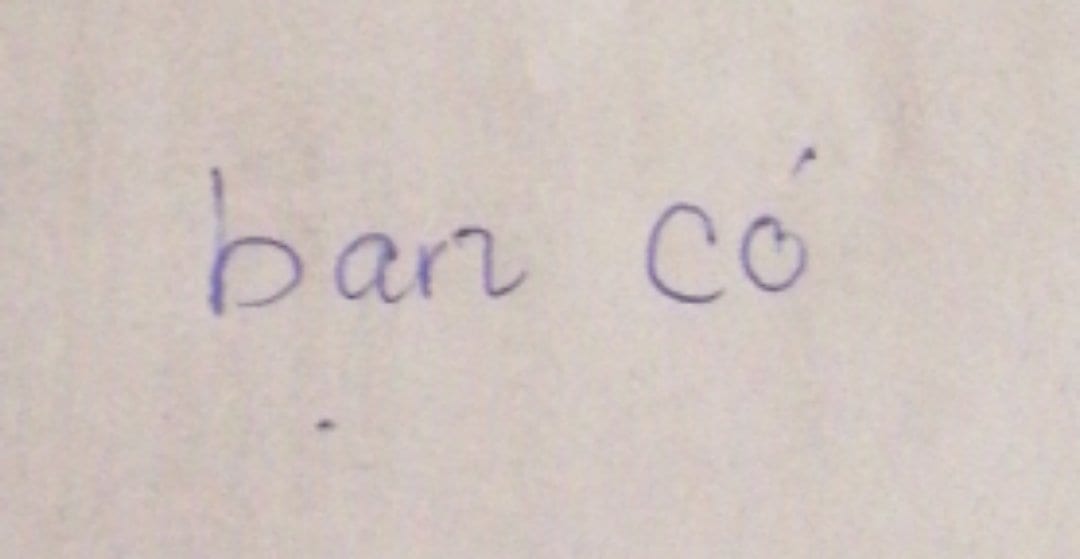 bạn có